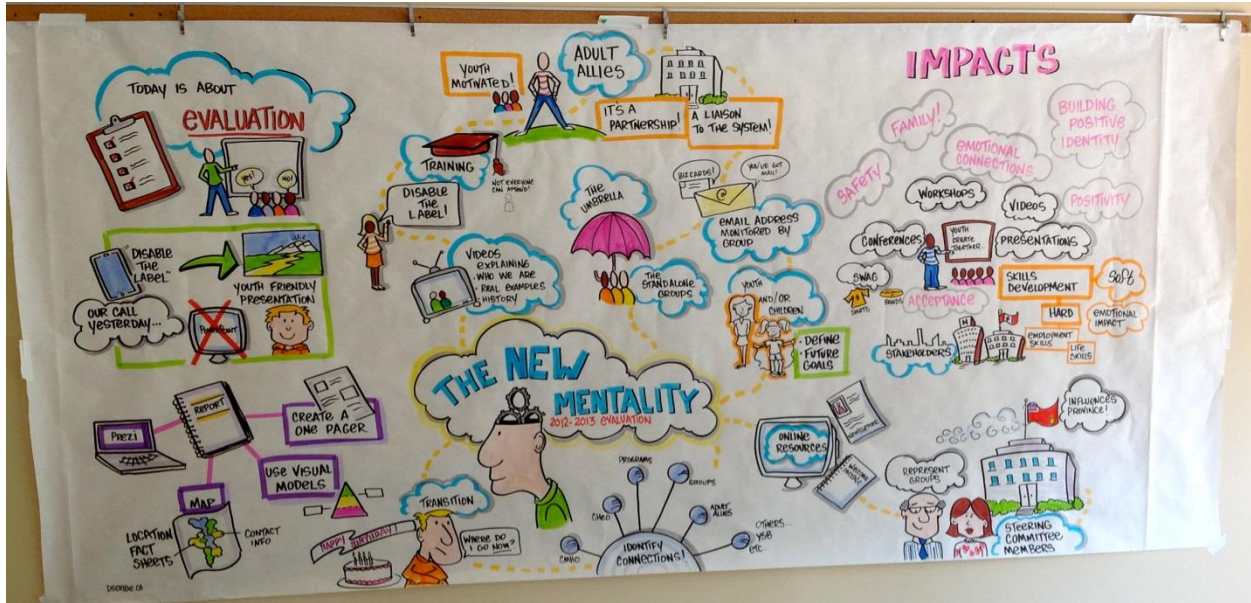 TODAY IS ABOUT
EVALUATION
YES!
NO!
"DISABLE
THE
LABEL"
YOUTH FRIENDLY
PRESENTATION
OUR CALL
YESTERDAY...
POWERPOINT
PREZI
REPORT
CREATE A
ONE PAGER
USE VISUAL
MODELS
MAP
LOCATION
FACT
SHEETS
CONTACT
INFO
YOUTH
MOTIVATED!
ADULT
ALLIES
IT'S A
PARTNERSHIP!
A LIAISON
TO THE SYSTEM!
TRAINING
NOT EVERYONE
CAN ATTEND!
DISABLE
THE
LABEL!
VIDEOS
EXPLAINING
• WHO WE ARE
• REAL EXAMPLES
• HISTORY
THE
UMBRELLA
THE
STANDALONE
GROUPS
BIZ CARDS!
YOU'VE GOT
MAIL!
@
EMAIL ADDRESS
MONITORED BY
GROUP
YOUTH
AND/OR
CHILDREN
• DEFINE
• FUTURE
GOALS
THE NEW
MENTALITY
2012-2013 EVALUATION
TRANSITION...
HAPPY BIRTHDAY!
WHERE DO
I GO NOW?
IDENTIFY
CONNECTIONS!
CMHO
CHEO
PROGRAMS
GROUPS
ADULT
ALLIES
OTHERS...
YSB
ETC
ONLINE
RESOURCES
NEWSLETTER
IMPACTS
FAMILY!
BUILDING
POSITIVE
IDENTITY
EMOTIONAL
CONNECTIONS
SAFETY
POSITIVITY
WORKSHOPS
VIDEOS
CONFERENCES
YOUTH
CREATE
TOGETHER
PRESENTATIONS
SWAG
SHIRTS
BANDS
ACCEPTANCE
SKILLS
DEVELOPMENT
SOFT
HARD
EMOTIONAL
IMPACT
EMPLOYMENT
SKILLS
LIFE
SKILLS
STAKEHOLDERS
H
INFLUENCES
PROVINCE!
REPRESENT
GROUPS
STEERING
COMMITTEE
MEMBERS